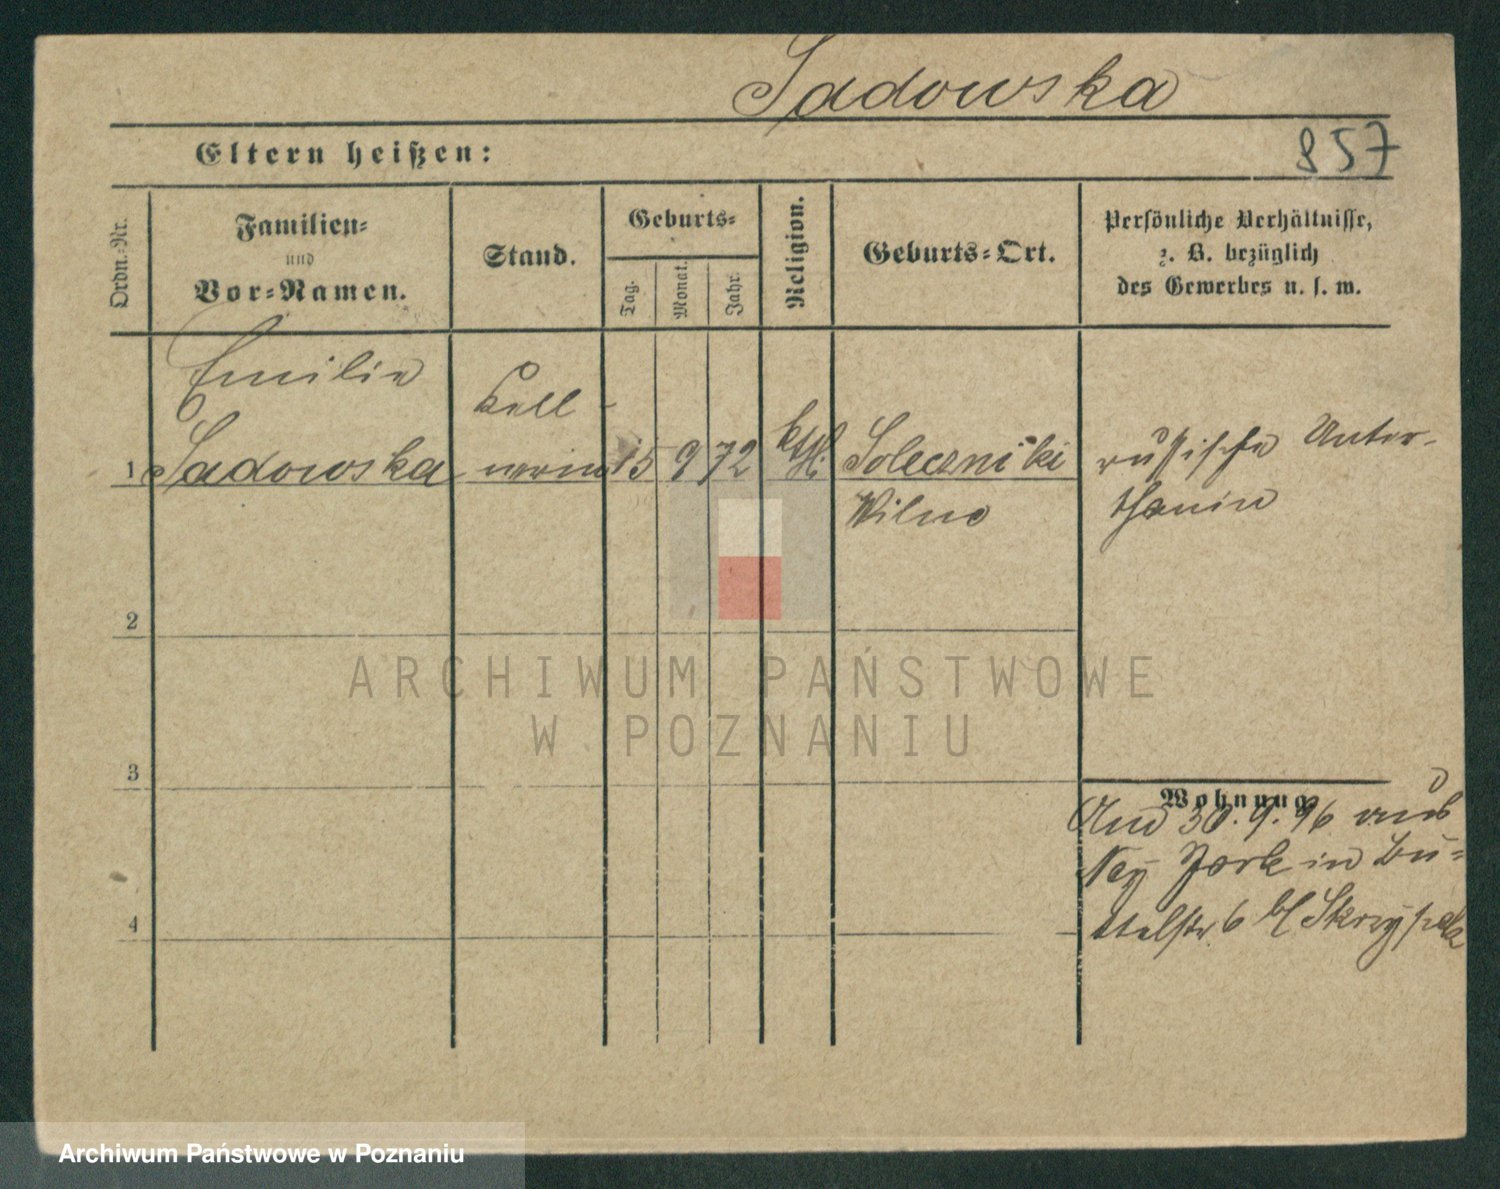 Sadowska
857
Eltern heißen:
Ordn.-Nr.
Familien-
und
Vor-Namen.
Stand.
Geburts-
Tag.
Monat.
Jahr.
Religion.
Geburts-Ort.
Persönliche Verhältnisse,
z. B. bezüglich
des Gewerbes u. s. w.
Emilie
Kell-
1 Sadowska nerin 15 9 72 kth. Soleczniki russische Unter-
Wilno thanin
2
3
Wohnung
30.9.96 aus
York in Bu-
ttelstr 6 bei
4
ARCHIWUM PAŃSTWOWE
W POZNANIU
Archiwum Państwowe w Poznaniu